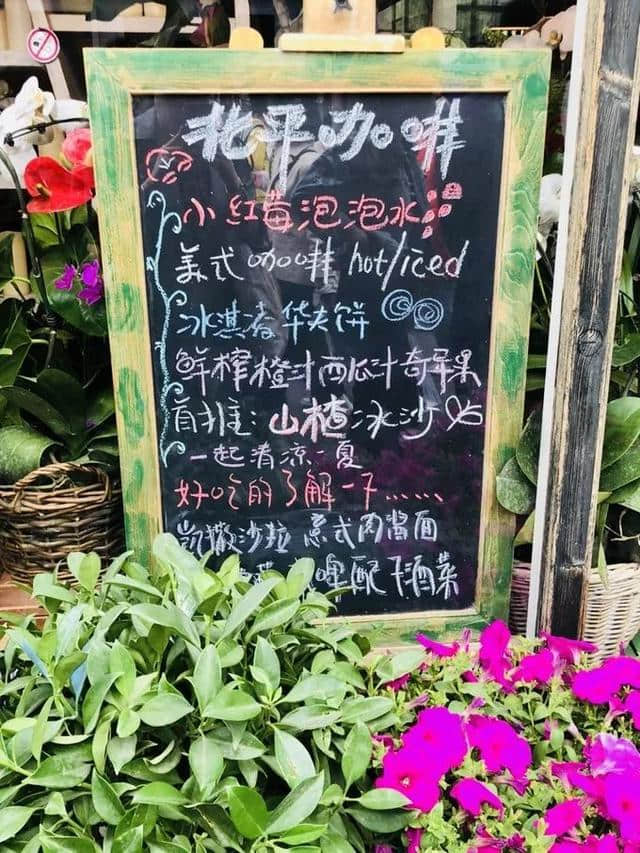 北平咖啡
小红莓泡泡水
美式咖啡 hot/iced
冰淇凌华夫饼
鲜榨橙汁西瓜汁奇异果
首推:山楂冰沙
一起清凉一夏
好吃的了解一下......
凯撒沙拉 意式肉酱面
啤配下酒菜